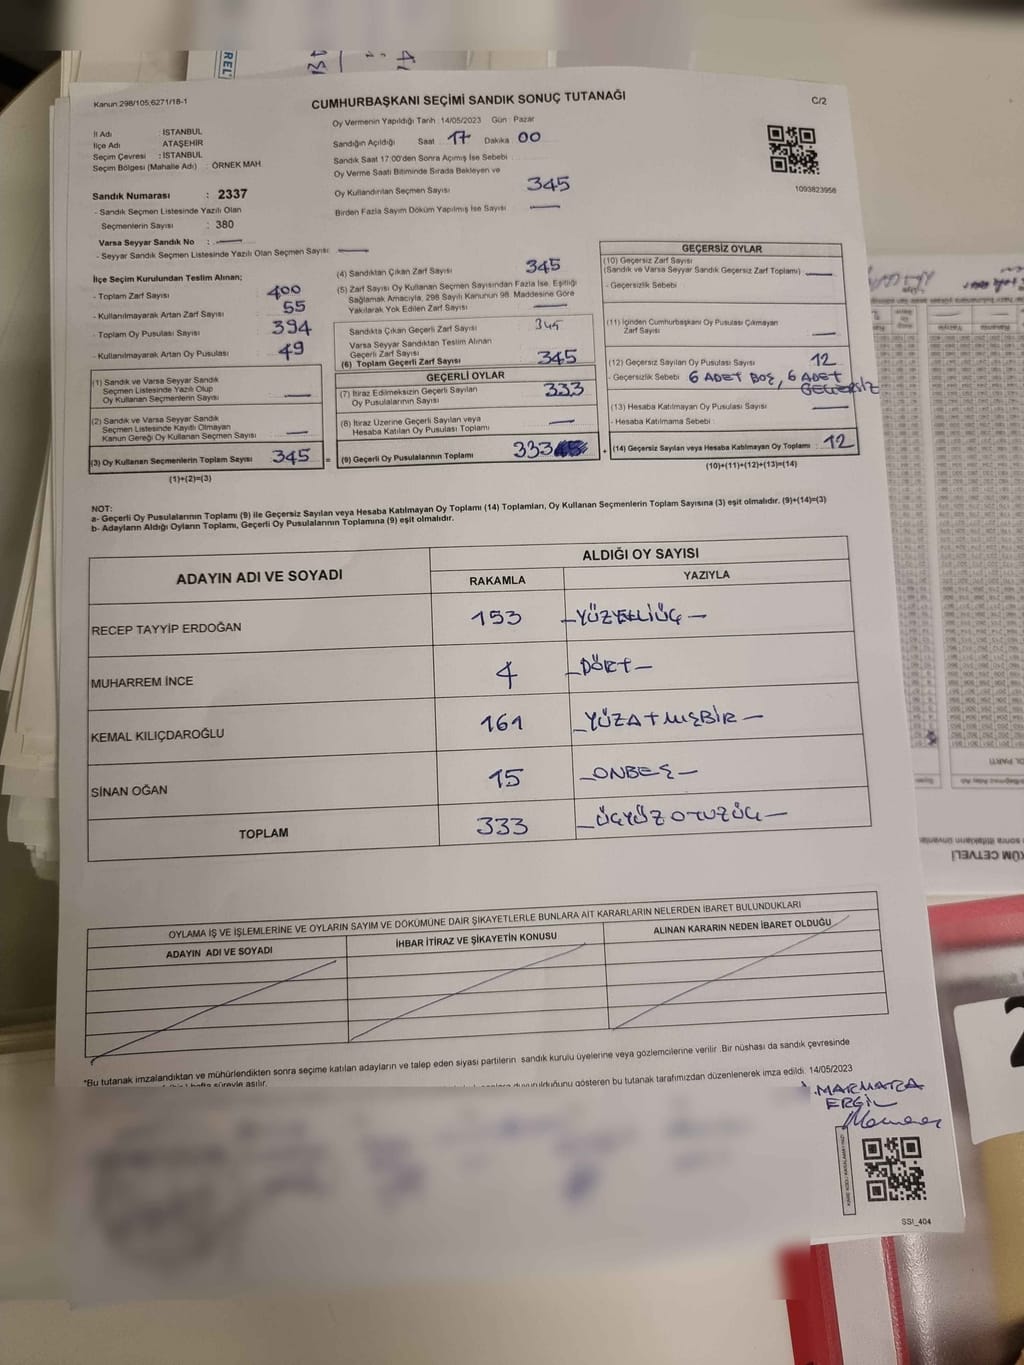 Kanun:298/105;6271/18-1
CUMHURBAŞKANI SEÇİMİ SANDIK SONUÇ TUTANAĞI
C/2
İl Adı : İSTANBUL
İlçe Adı : ATAŞEHİR
Seçim Çevresi : İSTANBUL
Seçim Bölgesi (Mahalle Adı) : ÖRNEK MAH
Sandık Numarası : 2337
- Sandık Seçmen Listesinde Yazılı Olan
Seçmenlerin Sayısı : 380
Varsa Seyyar Sandık No : —
- Seyyar Sandık Seçmen Listesinde Yazılı Olan Seçmen Sayısı : —
Oy Vermenin Yapıldığı Tarih :14/05/2023 Gün : Pazar
Sandığın Açıldığı Saat 17 Dakika 00
Sandık Saat 17:00'den Sonra Açımış İse Sebebi
Oy Verme Saati Bitiminde Sırada Bekleyen ve
Oy Kullandırılan Seçmen Sayısı 345
Birden Fazla Sayım Döküm Yapılmış İse Sayısı —
1093823958
İlçe Seçim Kurulundan Teslim Alınan;
- Toplam Zarf Sayısı 400
- Kullanılmayarak Artan Zarf Sayısı 55
- Toplam Oy Pusulası Sayısı 394
- Kullanılmayarak Artan Oy Pusulası 49
(1) Sandık ve Varsa Seyyar Sandık
Seçmen Listesinde Yazılı Olup
Oy Kullanan Seçmenlerin Sayısı —
(2) Sandık ve Varsa Seyyar Sandık
Seçmen Listesinde Kayıtlı Olmayan
Kanun Gereği Oy Kullanan Seçmen Sayısı —
(3) Oy Kullanan Seçmenlerin Toplam Sayısı 345 =
(1)+(2)=(3)
(4) Sandıktan Çıkan Zarf Sayısı 345
(5) Zarf Sayısı Oy Kullanan Seçmen Sayısından Fazla İse, Eşitliği
Sağlamak Amacıyla, 298 Sayılı Kanunun 98. Maddesine Göre
Yakılarak Yok Edilen Zarf Sayısı —
Sandıkta Çıkan Geçerli Zarf Sayısı 345
Varsa Seyyar Sandıktan Teslim Alınan
Geçerli Zarf Sayısı
(6) Toplam Geçerli Zarf Sayısı 345
GEÇERLİ OYLAR
(7) İtiraz Edilmeksizin Geçerli Sayılan
Oy Pusulalarının Sayısı 333
(8) İtiraz Üzerine Geçerli Sayılan veya
Hesaba Katılan Oy Pusulası Toplamı —
(9) Geçerli Oy Pusulalarının Toplamı 333 +
GEÇERSİZ OYLAR
(10) Geçersiz Zarf Sayısı
(Sandık ve Varsa Seyyar Sandık Geçersiz Zarf Toplamı) —
- Geçersizlik Sebebi
(11) İçinden Cumhurbaşkanı Oy Pusulası Çıkmayan
Zarf Sayısı —
(12) Geçersiz Sayılan Oy Pusulası Sayısı 12
- Geçersizlik Sebebi 6 ADET BOŞ, 6 ADET
GEÇERSİZ
(13) Hesaba Katılmayan Oy Pusulası Sayısı —
- Hesaba Katılmama Sebebi
(14) Geçersiz Sayılan veya Hesaba Katılmayan Oy Toplamı 12
(10)+(11)+(12)+(13)=(14)
NOT:
a- Geçerli Oy Pusulalarının Toplamı (9) ile Geçersiz Sayılan veya Hesaba Katılmayan Oy Toplamı (14) Toplamları, Oy Kullanan Seçmenlerin Toplam Sayısına (3) eşit olmalıdır. (9)+(14)=(3)
b- Adayların Aldığı Oyların Toplamı, Geçerli Oy Pusulalarının Toplamına (9) eşit olmalıdır.
ADAYIN ADI VE SOYADI
ALDIĞI OY SAYISI
RAKAMLA YAZIYLA
RECEP TAYYİP ERDOĞAN 153 —YÜZELLİÜÇ—
MUHARREM İNCE 4 —DÖRT—
KEMAL KILIÇDAROĞLU 161 —YÜZATMIŞBİR—
SİNAN OĞAN 15 —ONBEŞ—
TOPLAM 333 —ÜÇYÜZOTUZÜÇ—
OYLAMA İŞ VE İŞLEMLERİNE VE OYLARIN SAYIM VE DÖKÜMÜNE DAİR ŞİKAYETLERLE BUNLARA AİT KARARLARIN NELERDEN İBARET BULUNDUKLARI
ADAYIN ADI VE SOYADI İHBAR İTİRAZ VE ŞİKAYETİN KONUSU ALINAN KARARIN NEDEN İBARET OLDUĞU
*Bu tutanak imzalandıktan ve mühürlendikten sonra seçime katılan adayların ve talep eden siyasi partilerin sandık kurulu üyelerine veya gözlemcilerine verilir. Bir nüshası da sandık çevresinde
hafta süreyle asılır. duyurulduğunu gösteren bu tutanak tarafımızdan düzenlenerek imza edildi. 14/05/2023
MARMARA
ERGİL
SSI_404